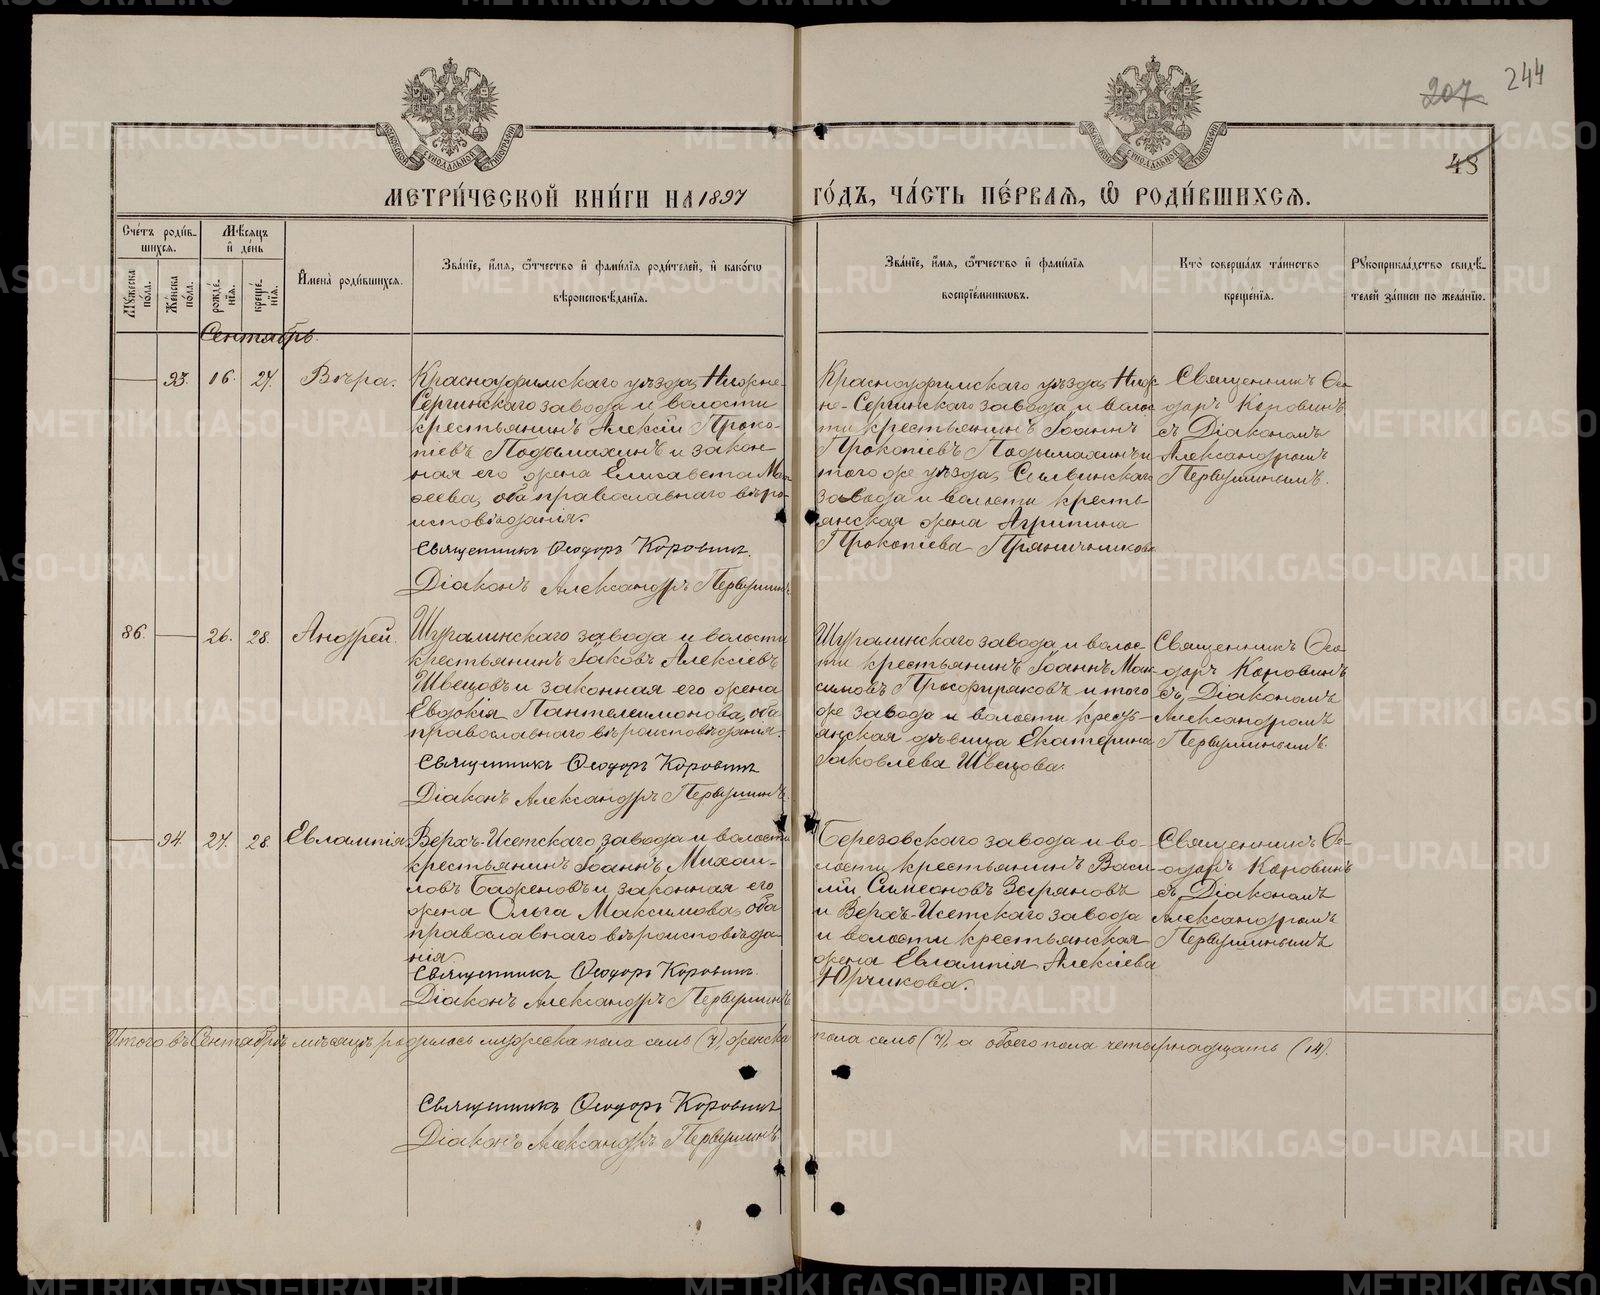 207 244
48
МОСКОВСКОЙ СѴНОДАЛЬНОЙ ТИПОГРАФІИ
МОСКОВСКОЙ СѴНОДАЛЬНОЙ ТИПОГРАФІИ
МЕТРИ́ЧЕСКОЙ КНИ́ГИ НА 1897 ГО́ДЪ, ЧА́СТЬ ПЕ́РВАЯ, Ѽ РОДИ́ВШИХСЯ.
Сче́тъ роди́в-
шихся.
Мꙋжеска по́ла.
Же́нска по́ла.
Мѣ́сяцъ
и҆ де́нь
рожде́нїя.
креще́нїя.
И҆мена̀ роди́вшихся.
Зва́нїе, и҆́мя, ѻ҆́тчество и҆ фами́лїя роди́телей, и҆ како́гѡ
вѣроисповѣ́данїя.
Зва́нїе, и҆́мя, ѻ҆́тчество и҆ фами́лїя
воспрїе́мниковъ.
Кто̀ соверша́лъ та́инство
креще́нїя.
Рꙋкоприкла́дство свидѣ́-
телей за́писи по жела́нїю.
Сентябрь.
93. 16. 27. Вѣра.
Красноуфимскаго уѣзда, Нижне-
Сергинскаго завода и волости
крестьянинъ Алексій Проко-
піевъ Подымахинъ и закон-
ная его жена Елисавета Мои-
сеева, оба православнаго вѣро-
исповѣданія.
Священникъ Ѳеодоръ Коровинъ.
Діаконъ Александръ Первушинъ
Красноуфимскаго уѣзда, Ниж-
не-Сергинскаго завода и волос-
ти крестьянинъ Іоаннъ
Прокопіевъ Подымахинъ и
того же уѣзда, Сылвинскаго
завода и волости кресть-
янская жена Агрипина
Прокопіева Пряничникова
Священникъ Ѳео-
доръ Коровинъ
съ Діакономъ
Александромъ
Первушинымъ.
86. 26. 28. Андрей.
Шуралинскаго завода и волости
крестьянинъ Іаковъ Алексіевъ
Швецовъ и законная его жена
Евдокія Пантелеимонова, оба
православнаго вѣроисповѣданія.
Священникъ Ѳеодоръ Коровинъ
Діаконъ Александръ Первушинъ.
Шуралинскаго завода и волос-
ти крестьянинъ Іоаннъ Мак-
симовъ Просфиряковъ и того
же завода и волости кресть-
янская дѣвица Екатерина
Іаковлева Швецова.
Священникъ Ѳео-
доръ Коровинъ
съ Діакономъ
Александромъ
Первушинымъ.
94. 27. 28. Евлампія
Верхъ-Исетскаго завода и волости
крестьянинъ Іоаннъ Михаи-
ловъ Баженовъ и законная его
жена Ольга Максимова, оба
православнаго вѣроисповѣда-
нія
Священникъ Ѳеодоръ Коровинъ.
Діаконъ Александръ Первушинъ
Березовскаго завода и во-
лости крестьянинъ Васи-
лій Симеоновъ Зыряновъ
и Верхъ-Исетскаго завода
и волости крестьянская
жена Евлампія Алексіева
Юрчикова.
Священникъ Ѳе-
одоръ Коровинъ
съ Діакономъ
Александромъ
Первушинымъ
Итого въ Сентябрѣ мѣсяцѣ родилось мужеска пола семь (7), женска пола семь (7), а обоего пола четырнадцать (14).
Священникъ Ѳеодоръ Коровинъ
Діаконъ Александръ Первушинъ.
METRIKI.GASO-URAL.RU